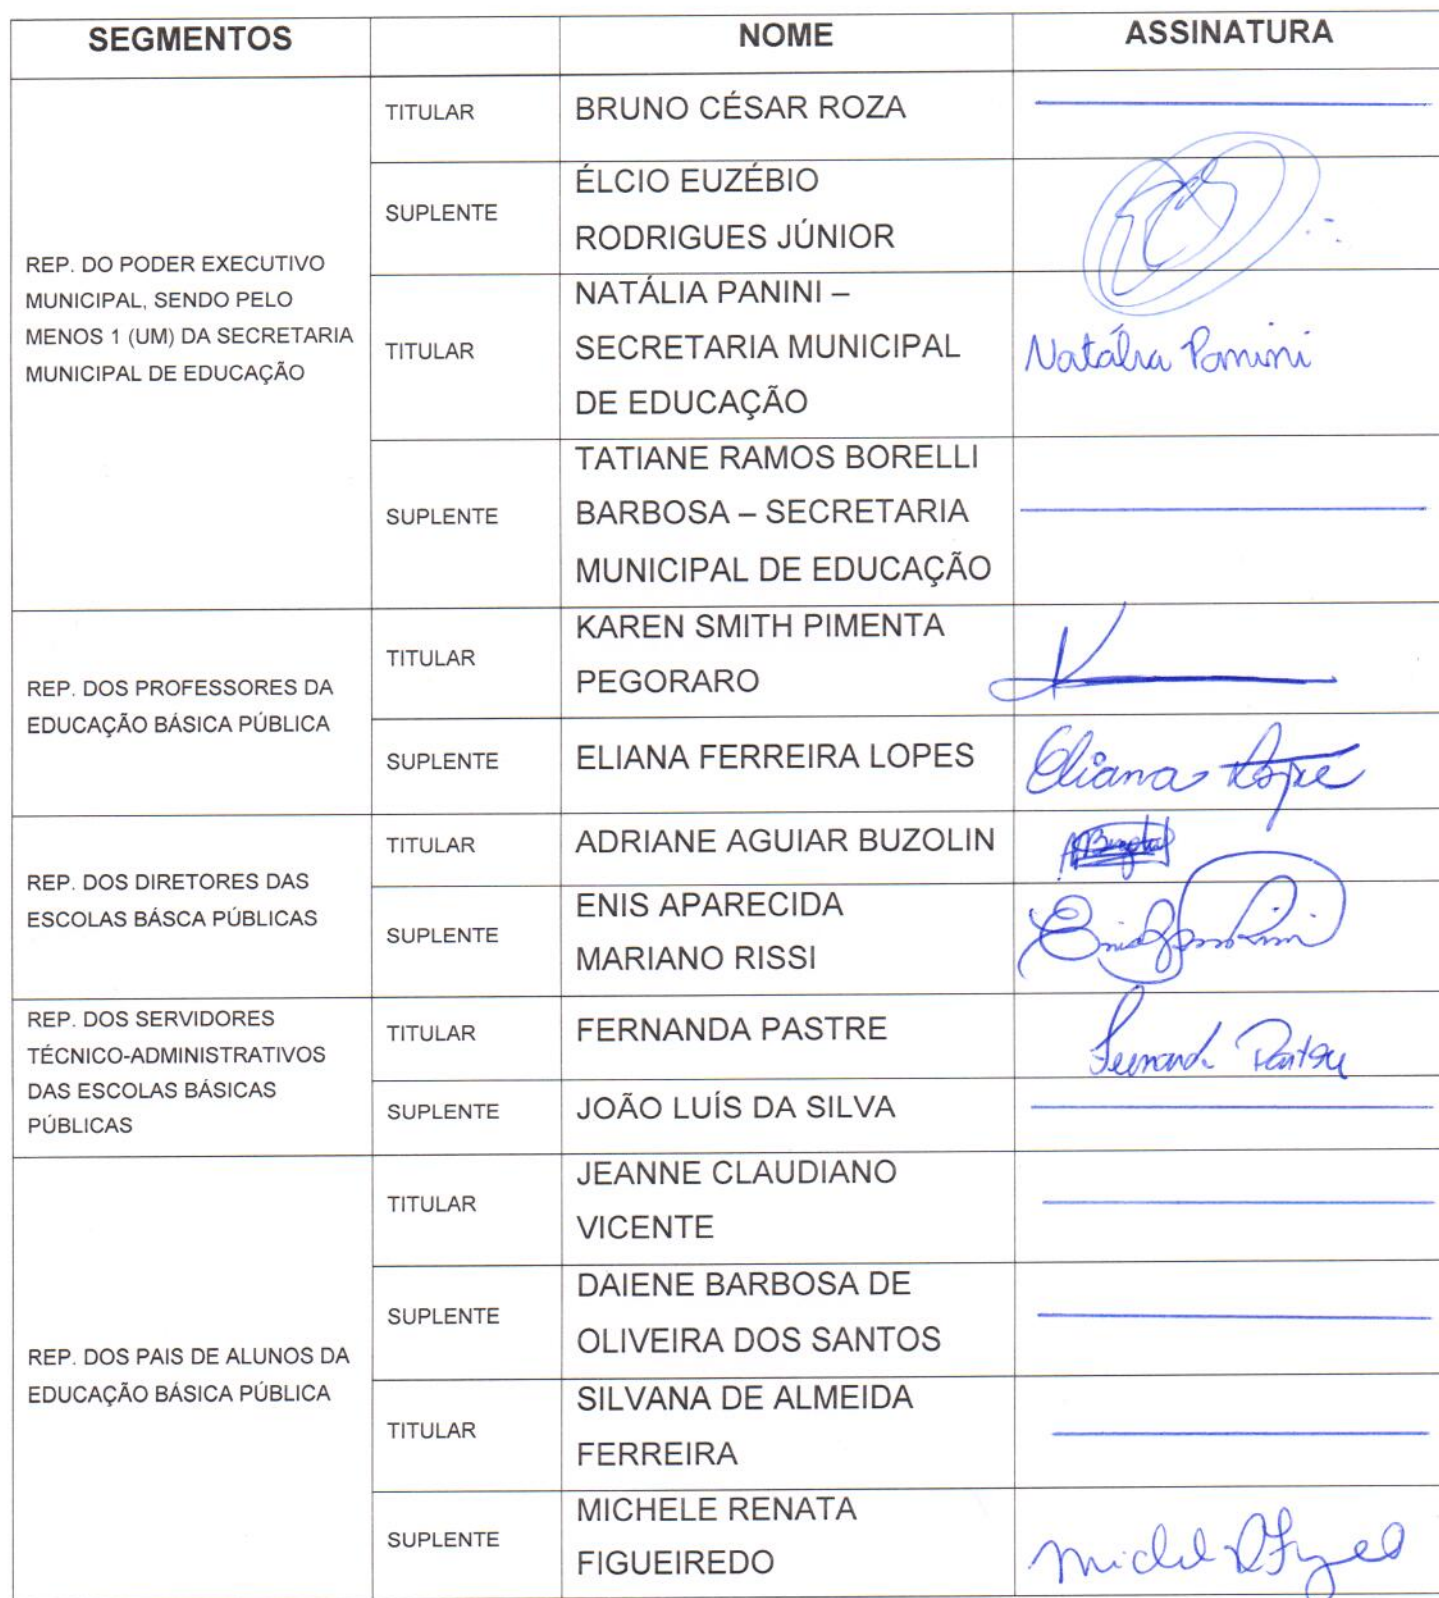 SEGMENTOS NOME ASSINATURA
REP. DO PODER EXECUTIVO
MUNICIPAL, SENDO PELO
MENOS 1 (UM) DA SECRETARIA
MUNICIPAL DE EDUCAÇÃO
TITULAR
BRUNO CÉSAR ROZA
SUPLENTE
ÉLCIO EUZÉBIO
RODRIGUES JÚNIOR
TITULAR
NATÁLIA PANINI –
SECRETARIA MUNICIPAL
DE EDUCAÇÃO
Natália Panini
SUPLENTE
TATIANE RAMOS BORELLI
BARBOSA – SECRETARIA
MUNICIPAL DE EDUCAÇÃO
REP. DOS PROFESSORES DA
EDUCAÇÃO BÁSICA PÚBLICA
TITULAR
KAREN SMITH PIMENTA
PEGORARO
SUPLENTE
ELIANA FERREIRA LOPES
Eliana Lope
REP. DOS DIRETORES DAS
ESCOLAS BÁSCA PÚBLICAS
TITULAR
ADRIANE AGUIAR BUZOLIN
SUPLENTE
ENIS APARECIDA
MARIANO RISSI
REP. DOS SERVIDORES
TÉCNICO-ADMINISTRATIVOS
DAS ESCOLAS BÁSICAS
PÚBLICAS
TITULAR
FERNANDA PASTRE
Fernanda Pastre
SUPLENTE
JOÃO LUÍS DA SILVA
REP. DOS PAIS DE ALUNOS DA
EDUCAÇÃO BÁSICA PÚBLICA
TITULAR
JEANNE CLAUDIANO
VICENTE
SUPLENTE
DAIENE BARBOSA DE
OLIVEIRA DOS SANTOS
TITULAR
SILVANA DE ALMEIDA
FERREIRA
SUPLENTE
MICHELE RENATA
FIGUEIREDO